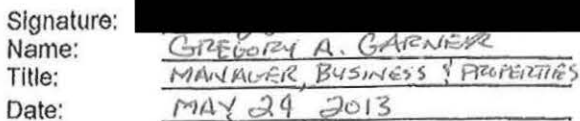 Signature:
Name: GREGORY A. GARNER
Title: MANAGER, BUSINESS & PROPERTIES
Date: MAY 24 2013